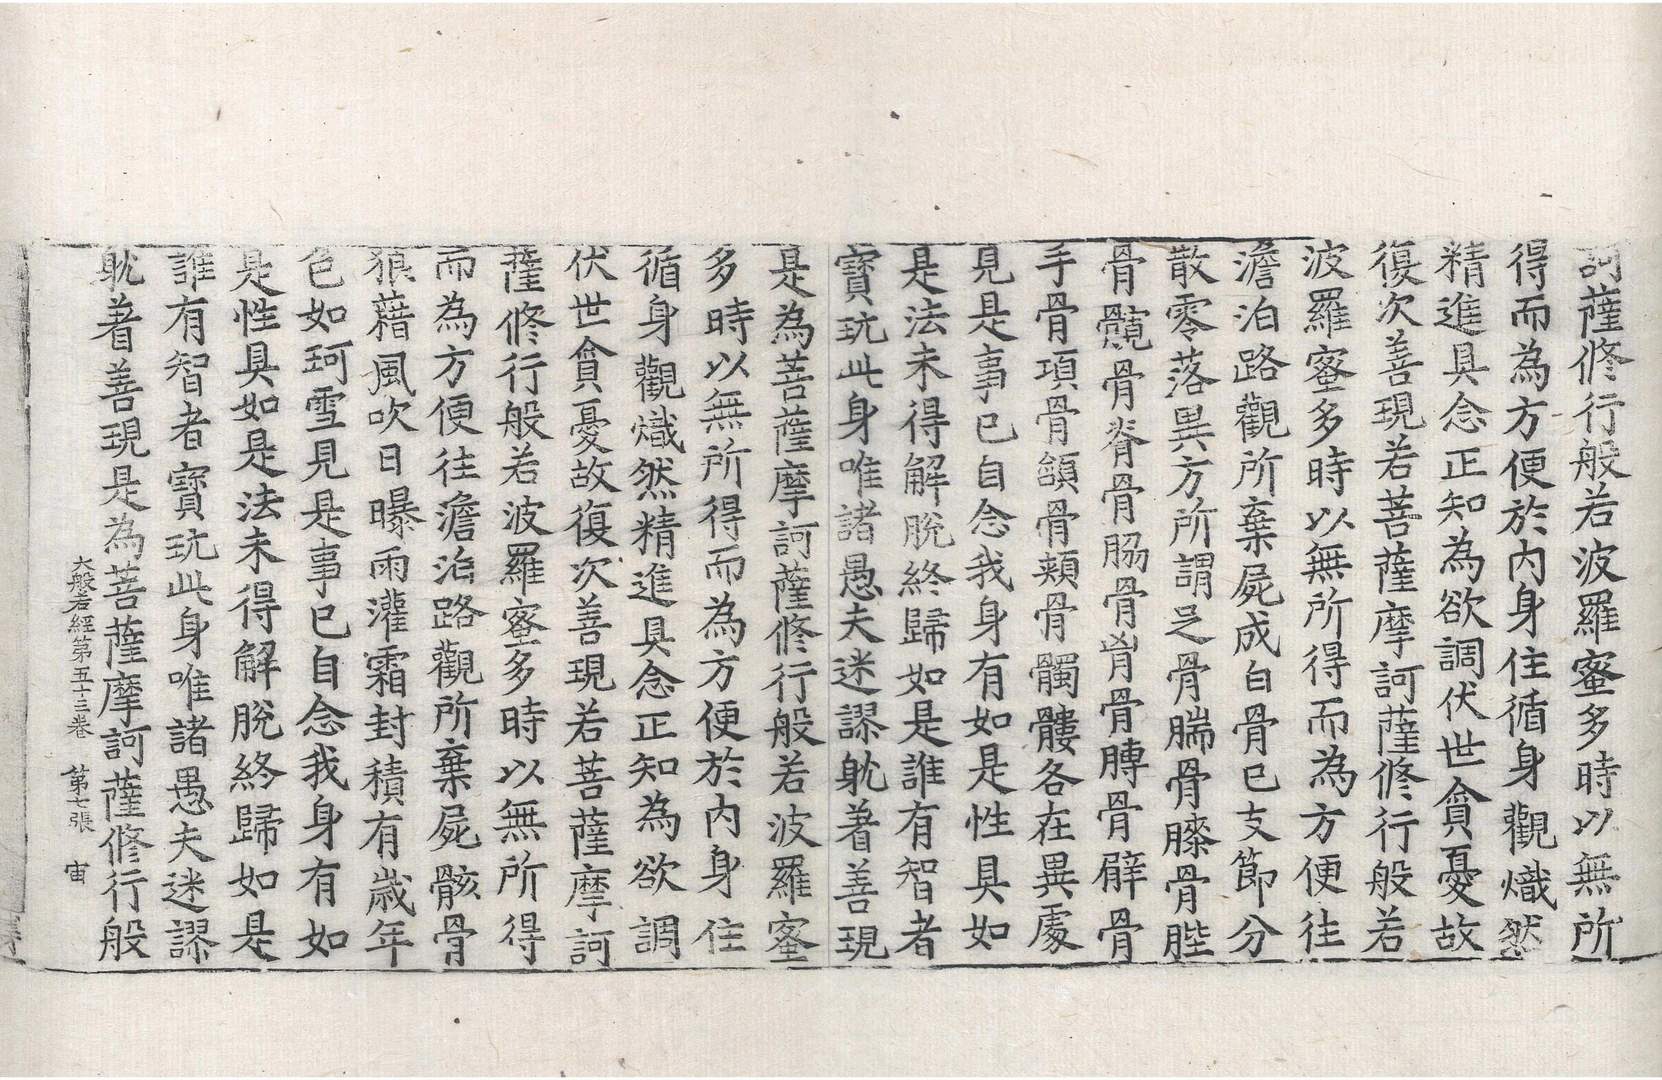 訶薩修行般若波羅蜜多時以無所
得而為方便於内身住循身觀熾然
精進具念正知為欲調伏世貪憂故
復次善現若菩薩摩訶薩修行般若
波羅蜜多時以無所得而為方便往
澹泊路觀所棄屍成白骨已支節分
散零落異方所謂足骨腨骨膝骨䏶
骨髖骨脊骨脇骨胷骨膊骨臂骨
手骨項骨頷骨頰骨髑髏各在異處
見是事已自念我身有如是性具如
是法未得解脫終歸如是誰有智者
寶玩此身唯諸愚夫迷謬躭著善現
是為菩薩摩訶薩修行般若波羅蜜
多時以無所得而為方便於内身住
循身觀熾然精進具念正知為欲調
伏世貪憂故復次善現若菩薩摩訶
薩修行般若波羅蜜多時以無所得
而為方便往澹泊路觀所棄屍骸骨
狼藉風吹日曝雨灌霜封積有歲年
色如珂雪見是事已自念我身有如
是性具如是法未得解脫終歸如是
誰有智者寶玩此身唯諸愚夫迷謬
躭著善現是為菩薩摩訶薩修行般
大般若經第五十三卷 第七張 宙